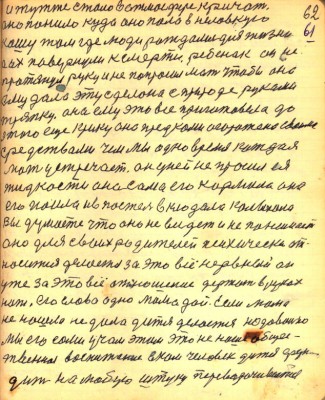 и тут же стало встмосфуе кричат.
62
оно попило куда оно попало в неловкую
61
кашу там где люди рождали для жизни
а их повернули к смерти, ребенок он не
протянул руки и не попросил мат чтобы она
ему дала эту сделона с природе руками
тряпку. она ему это всё приготовела до
этого еще крику она предками
средствами чем мы одно время каждая
мать устречает. он у ней не просил ея
жидкость она сама его кормила она
его пошла и в постел в кюдала колыхала
Вы думаете что оно не видет и не понимает
оно для своих родителей психически от
носится делается за это всё нервный он
уже за это всё отношение держит в руках
нами, его слово одно мама дай. Если мама
не нашла не дала дитя делается недовольно
Мы его сами учим этим Это не наше общес-
твенное воспитание в ком человек дитя
дит на любую штуку переворачивается